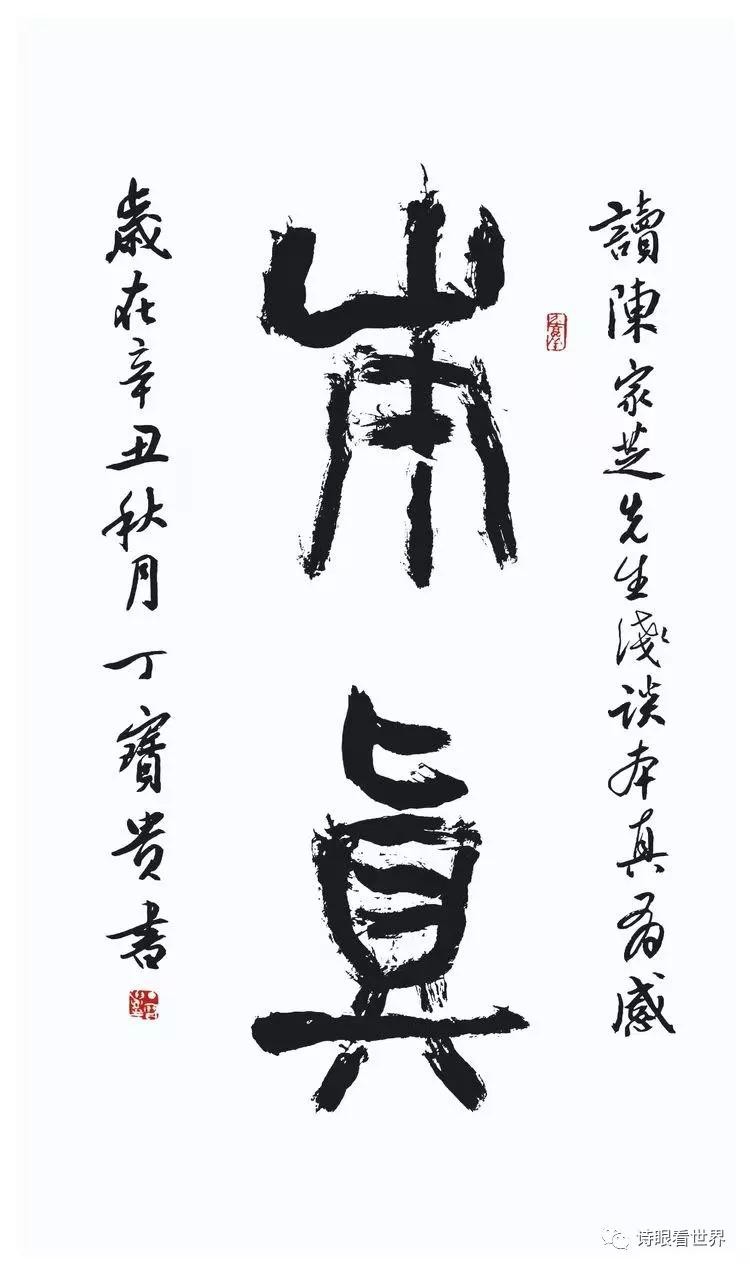 讀陳家芝先生淺談本真有感
本眞
歲在辛丑秋月丁寶贵书
诗眼看世界